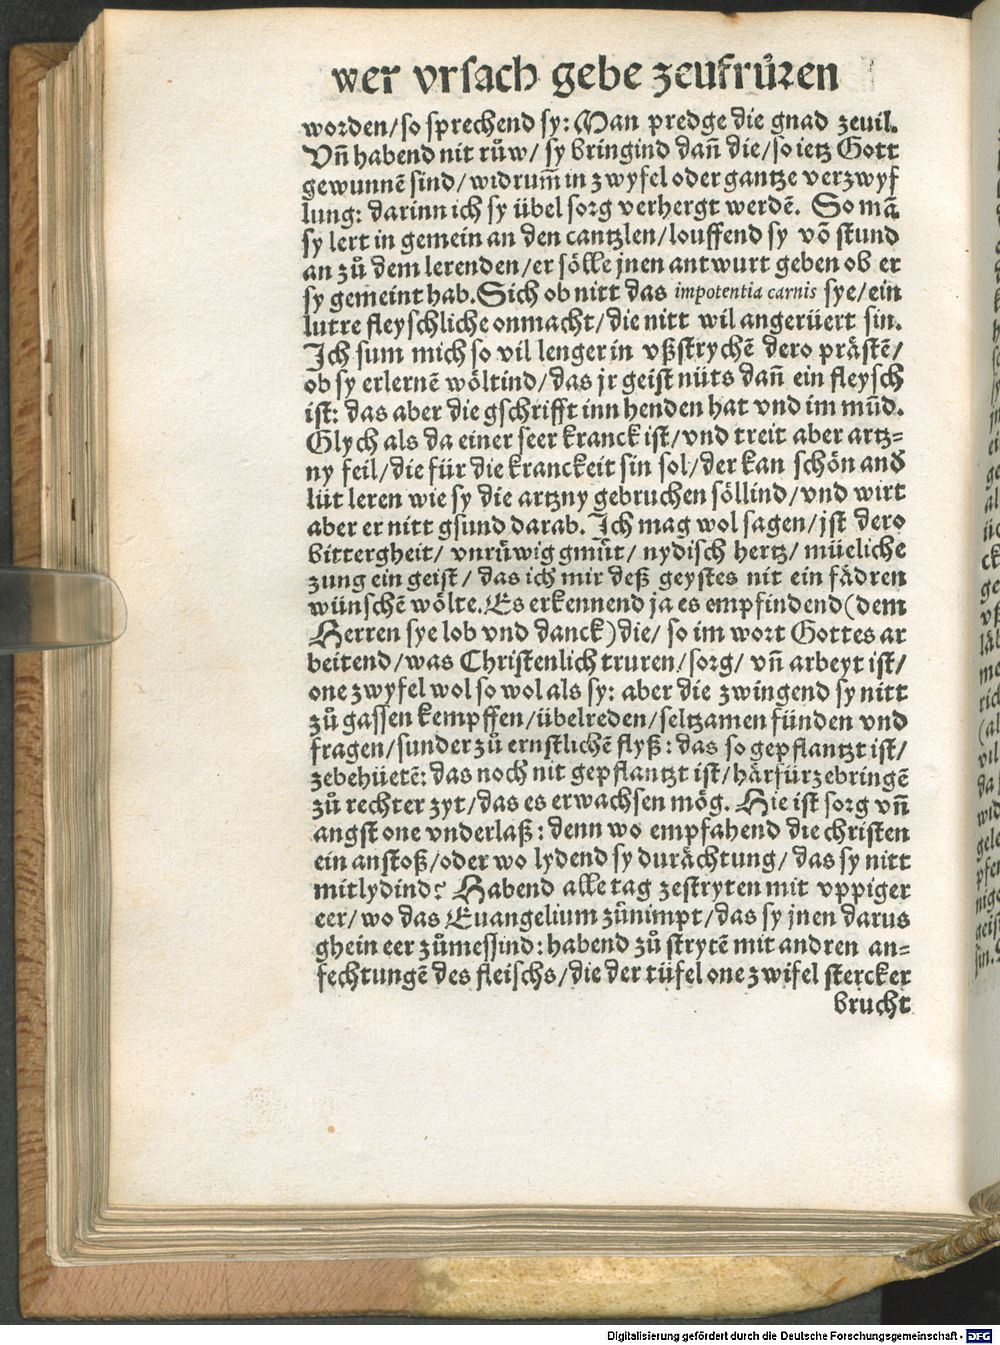 wer vrsach gebe zeufrůren
worden/so sprechend sy: Man predge die gnad zeuil.
Vñ habend nit růw/ sy bringind dañ die/so ietz Gott
gewunnẽ sind/widrum̃ in zwyfel oder gantze verzwyf
lung: darinn ich sy übel sorg verhergt werdẽ. So mã
sy lert in gemein an den cantzlen/louffend sy võ stund
an zů dem lerenden/er sölle jnen antwurt geben ob er
sy gemeint hab. Sich ob nitt das impotentia carnis sye/ein
lutre fleyschliche onmacht/die nitt wil angerüert sin.
Ich sum mich so vil lenger in vßstrychẽ dero prästẽ/
ob sy erlernẽ wöltind/das jr geist nüts dañ ein fleysch
ist: das aber die gschrifft inn henden hat vnd im mũd.
Glych als da einer seer kranck ist/vnd treit aber artz-
ny feil/die für die kranckeit sin sol/der kan schön and
lüt leren wie sy die artzny gebruchen söllind/vnd wirt
aber er nitt gsund darab. Ich mag wol sagen/jst dero
bittergheit/ vnrůwig gmůt/ nydisch hertz/ müeliche
zung ein geist/ das ich mir deß geystes nit ein fädren
wünschẽ wölte. Es erkennend ja es empfindend (dem
Herren sye lob vnd danck) die/ so im wort Gottes ar
beitend/was Christenlich truren/sorg/ vñ arbeyt ist/
one zwyfel wol so wol als sy: aber die zwingend sy nitt
zů gassen kempffen/übelreden/seltzamen fünden vnd
fragen/sunder zů ernstlichẽ flyß: das so gepflantzt ist/
zebehüetẽ: das noch nit gepflantzt ist/härfürzebringẽ
zů rechter zyt/das es erwachsen mög. Hie ist sorg vñ
angst one vnderlaß: denn wo empfahend die christen
ein anstoß/oder wo lydend sy durächtung/das sy nitt
mitlydind? Habend alle tag zestryten mit vppiger
eer/wo das Euangelium zůnimpt/das sy jnen darus
ghein eer zůmessind: habend zů strytẽ mit andren an-
fechtungẽ des fleischs/die der tüfel one zwifel stercker
brucht
Digitalisierung gefördert durch die Deutsche Forschungsgemeinschaft - DFG